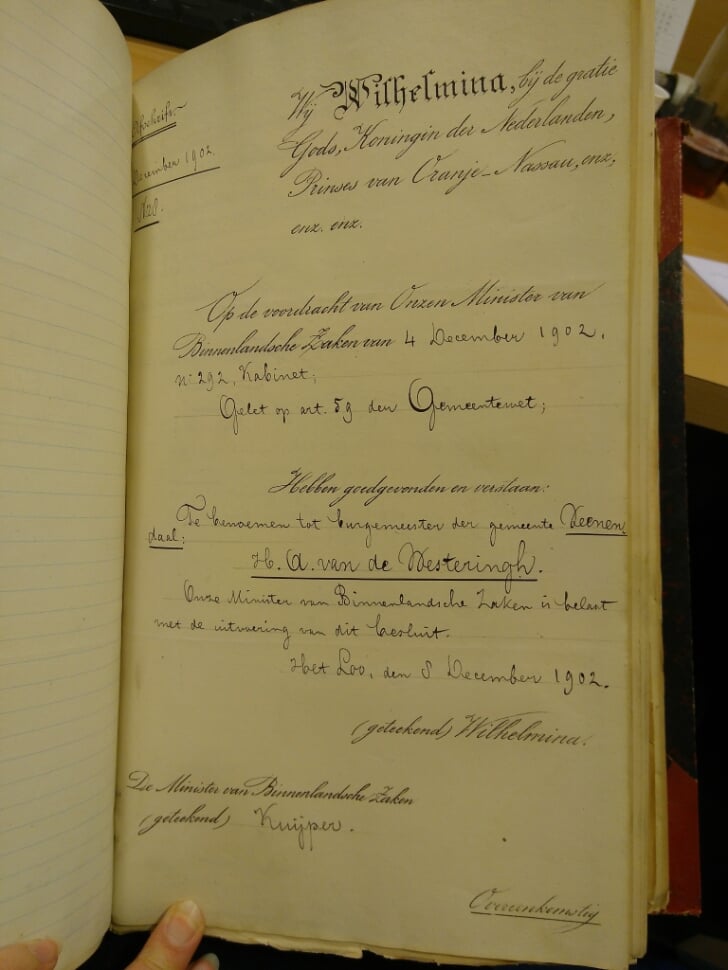 Afschrift
December 1902.
N 28.
Wij Wilhelmina, bij de gratie
Gods, Koningin der Nederlanden,
Prinses van Oranje-Nassau, enz,
enz. enz.
Op de voordracht van Onzen Minister van
Binnenlandsche Zaken van 4 December 1902.
nº 292, Kabinet;
Gelet op art. 59 der Gemeentewet;
Hebben goedgevonden en verstaan:
Te benoemen tot burgemeester der gemeente Veenen
daal:
H. A. van de Westeringh.
Onze Minister van Binnenlandsche Zaken is belast
met de uitvoering van dit besluit.
Het Loo, den 8 December 1902.
(geteekend) Wilhelmina.
De Minister van Binnenlandsche Zaken
(geteekend) Kuijper.
Overeenkomstig